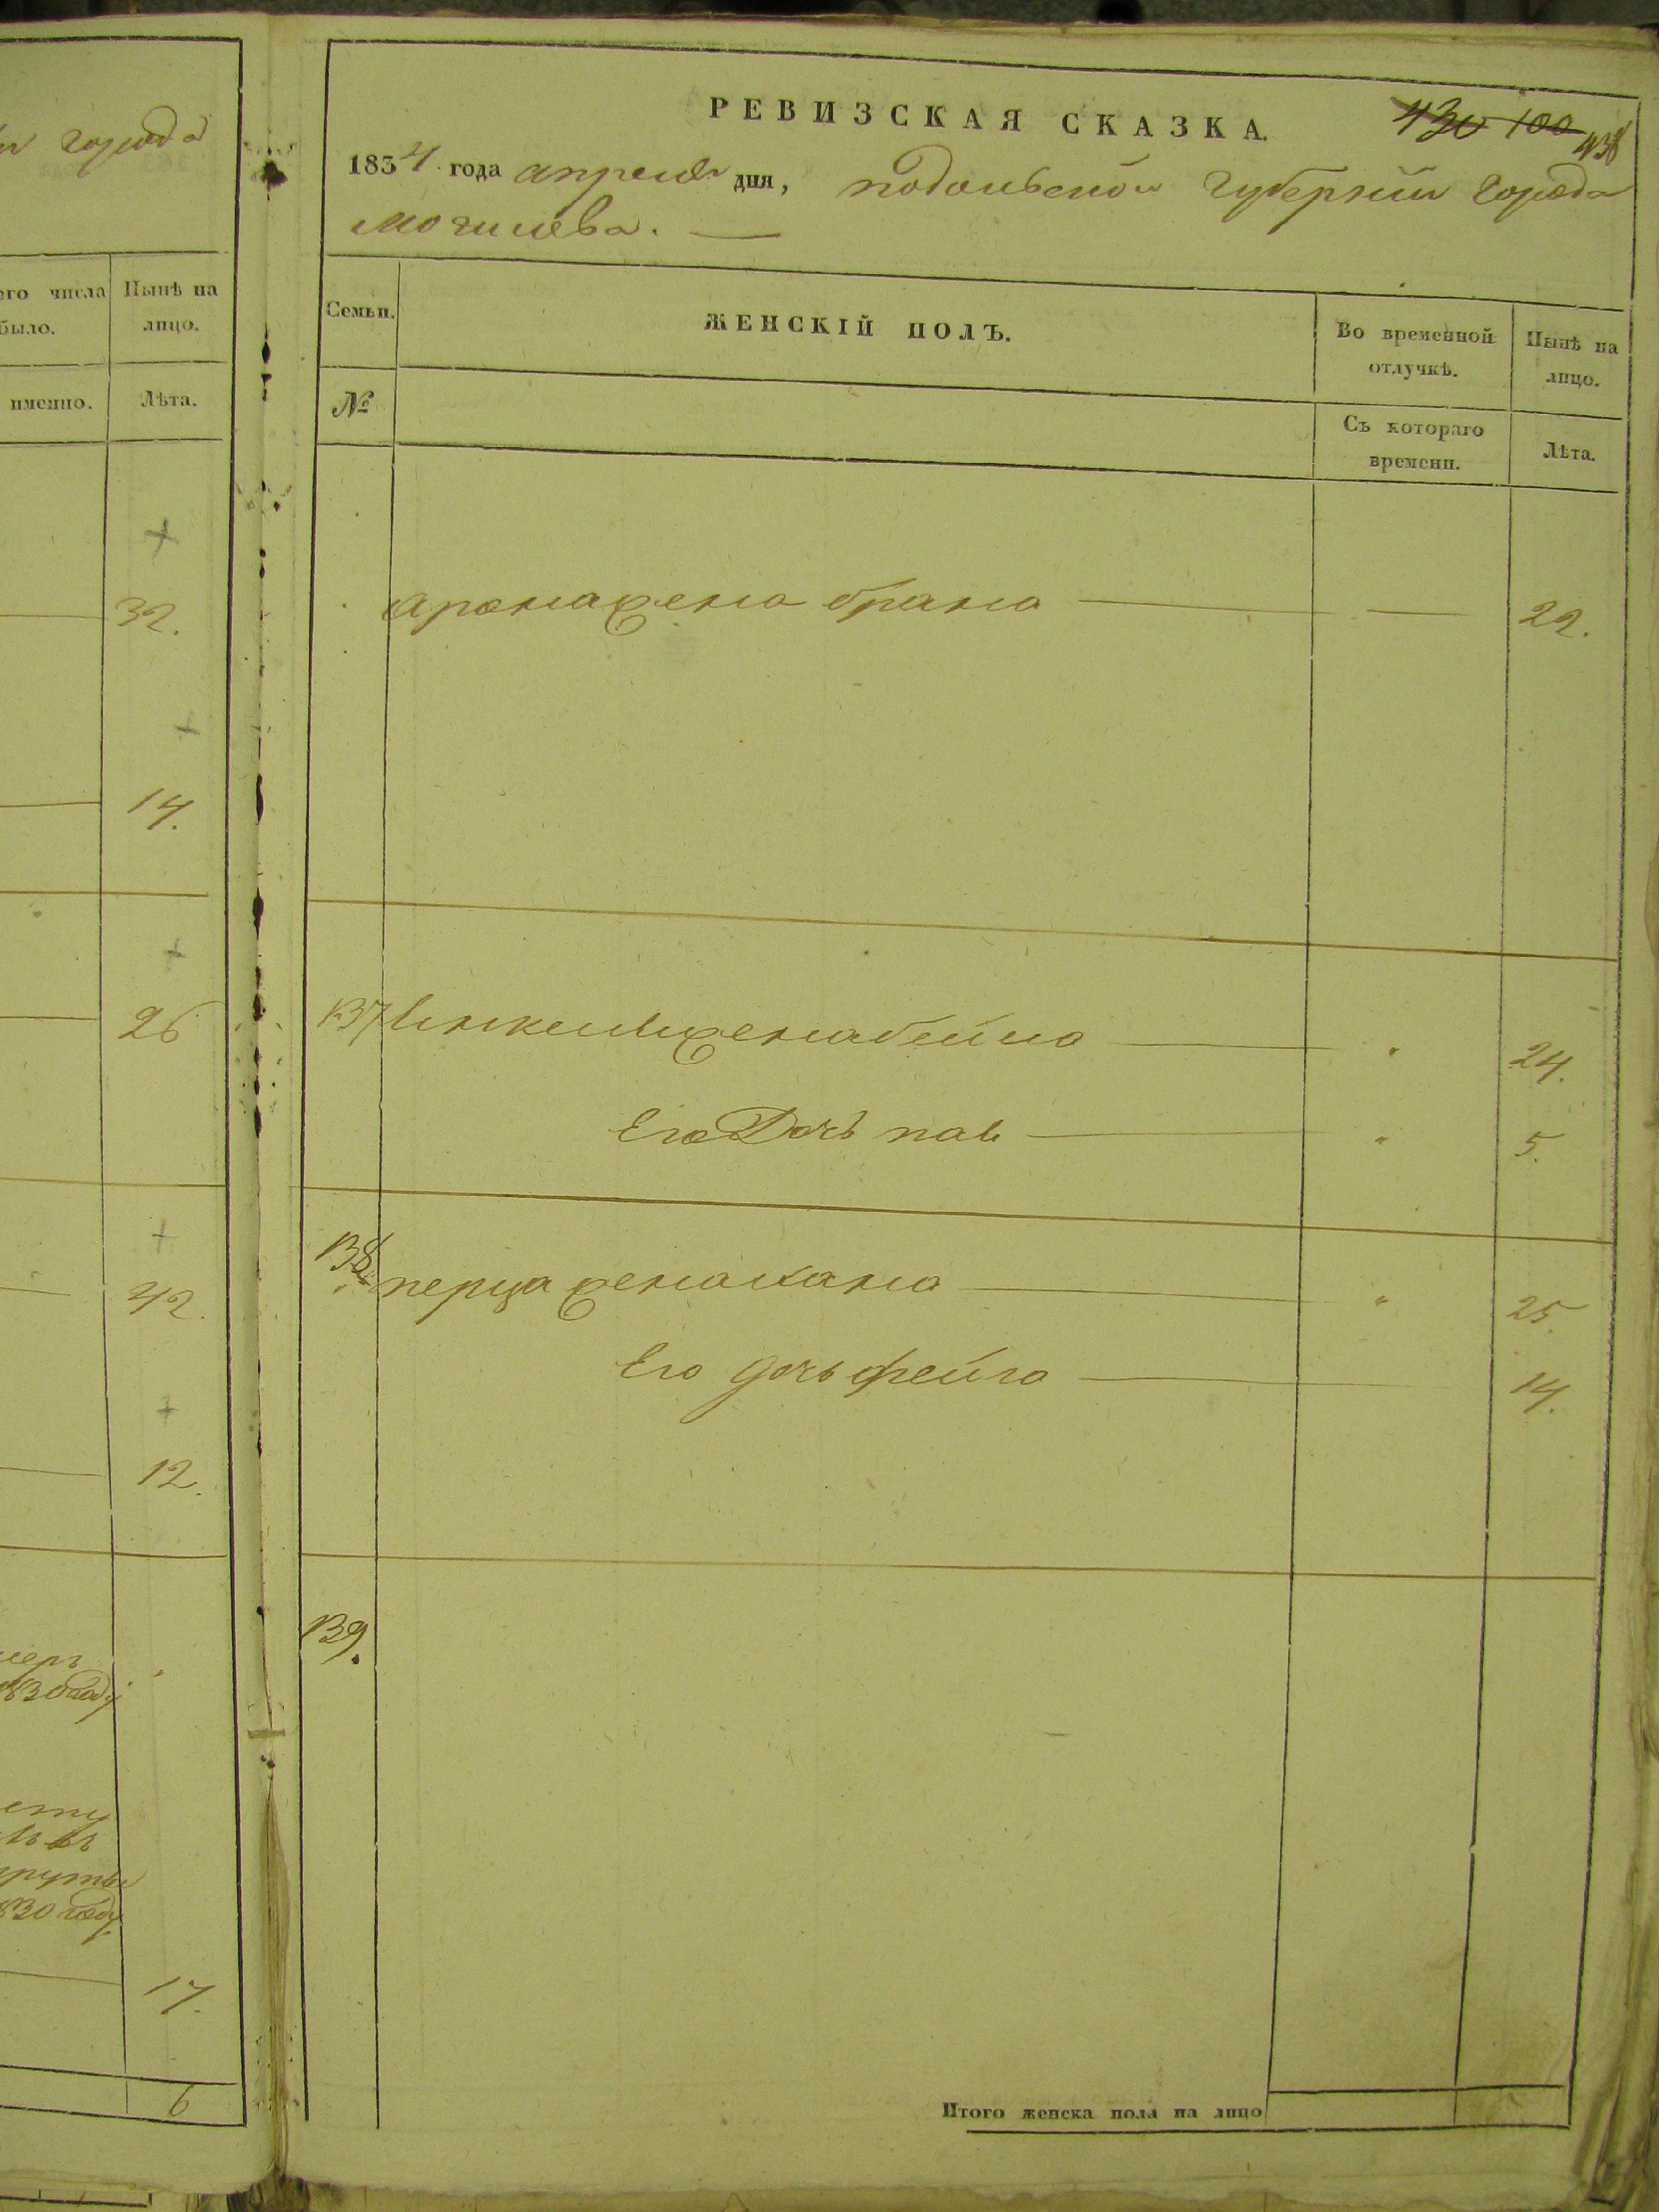 и города
ого числа
было.
Нынѣ на
лицо.
именно.
Лѣта.
32.
14.
26
42.
12.
мерь
1830 году
830 году
17.
6
РЕВИЗСКАЯ СКАЗКА.
430 100 438
1834 года апреля дня, подольской губернии города
могилева.
Семьи.
ЖЕНСКІЙ ПОЛЪ.
Во временной
отлучкѣ.
Нынѣ на
лицо.
№
Съ котораго
времени.
Лѣта.
Арона жена брана 22.
137 жена бейла 24.
Его Дочь 5.
138 перца жена хана 25.
Его дочь фейга 14.
139.
Итого женска пола на лицо